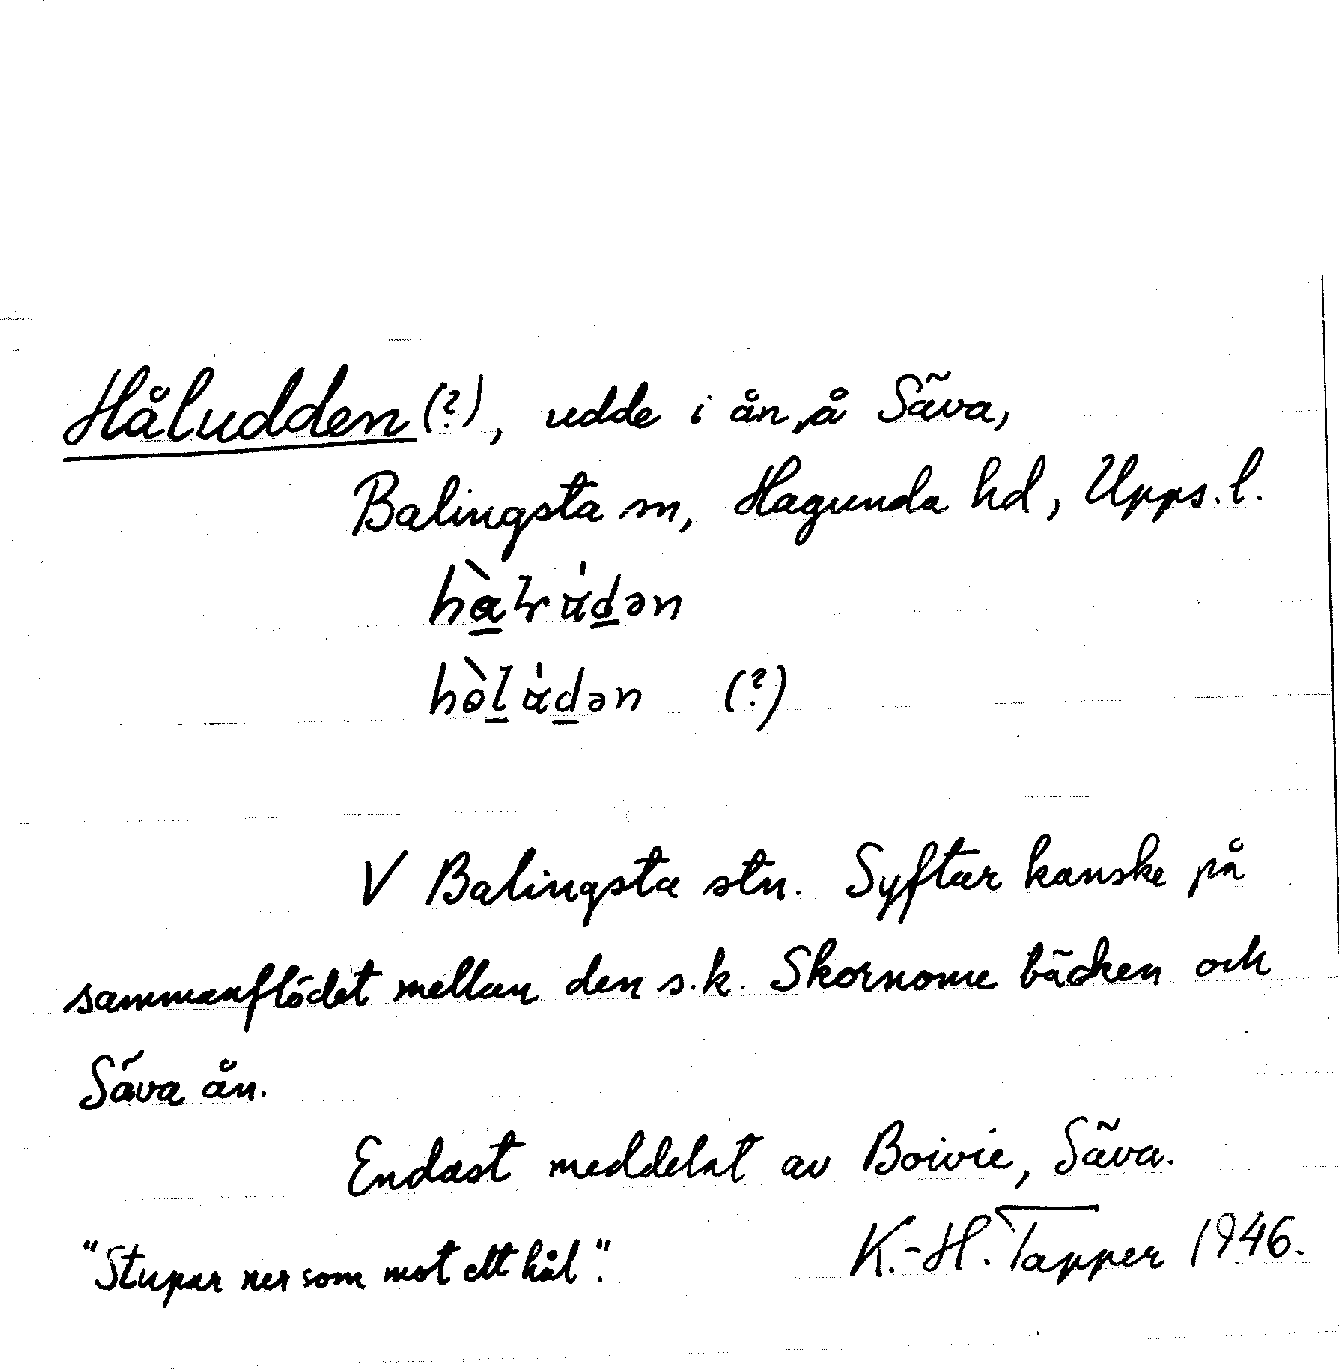 Håludden (?), udde i ån, å Säva,
Balingsta sn, Hagunda hd, Upps. l.
(?)
V Balingsta stn. Syftar kanske på
sammanflödet mellan den s.k. Skornome bäcken och
Säva ån.
Endast meddelat av Boivie, Säva.
"Stupar ner som mot ett hål".
K.-H. Tapper 1946.